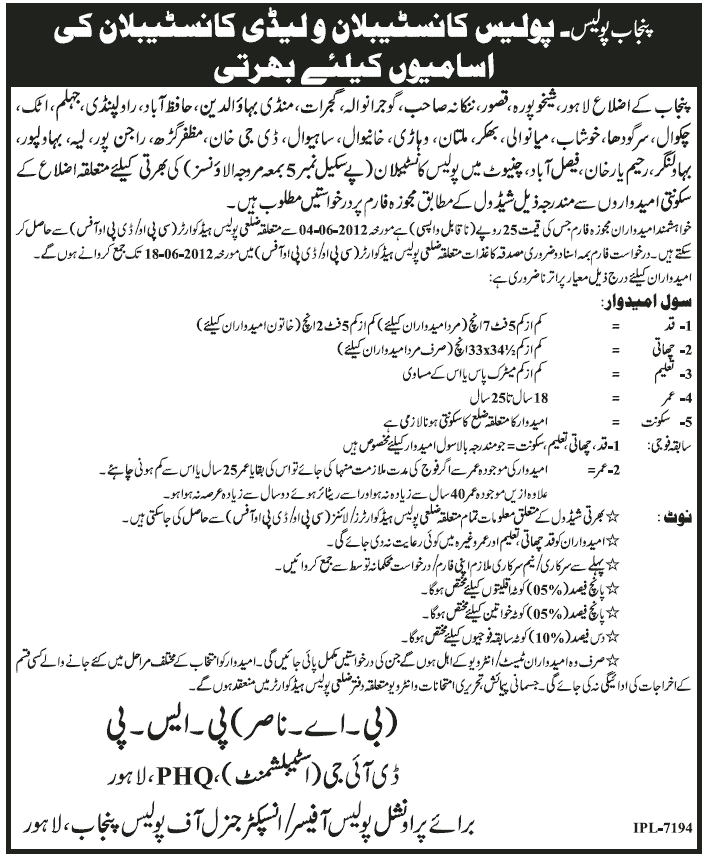 پنجاب پولیس۔ پولیس کانسٹیبلان و لیڈی کانسٹیبلان کی
اسامیوں کیلئے بھرتی
پنجاب کے اضلاع لاہور، شیخوپورہ، قصور، ننکانہ صاحب، گوجرانوالہ، گجرات، منڈی بہاؤالدین، حافظ آباد، راولپنڈی، جہلم، اٹک،
چکوال، سرگودھا، خوشاب، میانوالی، بھکر، ملتان، وہاڑی، خانیوال، ساہیوال، ڈی جی خان، مظفر گڑھ، راجن پور، لیہ، بہاولپور،
بہاولنگر، رحیم یار خان، فیصل آباد، چنیوٹ میں پولیس کانسٹیبلان (پے سکیل نمبر 5 بمعہ مروجہ الاؤنسز) کی بھرتی کیلئے متعلقہ اضلاع کے
سکونتی امیدواروں سے مندرجہ ذیل شیڈول کے مطابق مجوزہ فارم پر درخواستیں مطلوب ہیں۔
خواہشمند امیدواران مجوزہ فارم جس کی قیمت 25 روپے (ناقابل واپسی) ہے مورخہ 04-06-2012 سے متعلقہ ضلعی پولیس ہیڈ کوارٹر (سی پی او/ ڈی پی او آفس) سے حاصل کر
سکتے ہیں۔ درخواست فارم بمہ اسناد و ضروری مصدقہ کاغذات متعلقہ ضلعی پولیس ہیڈ کوارٹر (سی پی او/ ڈی پی او آفس) میں مورخہ 18-06-2012 تک جمع کروانے ہوں گے۔
امیدواران کیلئے درج ذیل معیار پر اترنا ضروری ہے:
سول امیدوار:
1- قد = کم از کم 5 فٹ 7 انچ (مرد امیدواران کیلئے) کم از کم 5 فٹ 2 انچ (خاتون امیدواران کیلئے)
2- چھاتی = کم از کم 33x34½ انچ (صرف مرد امیدواران کیلئے)
3- تعلیم = کم از کم میٹرک پاس یا اس کے مساوی
4- عمر = 18 سال تا 25 سال
5- سکونت = امیدوار کا متعلقہ ضلع کا سکونتی ہونا لازمی ہے
سابقہ فوجی: 1- قد، چھاتی، تعلیم، سکونت = جو مندرجہ بالا سول امیدوار کیلئے مخصوص ہیں
2- عمر = امیدوار کی موجودہ عمر سے اگر فوج کی مدت ملازمت منہا کی جائے تو اس کی بقایا عمر 25 سال یا اس سے کم ہونی چاہئے۔
علاوہ ازیں موجودہ عمر 40 سال سے زیادہ نہ ہو اور اسے ریٹائر ہوئے دو سال سے زیادہ عرصہ نہ ہوا ہو۔
نوٹ: ☆ بھرتی شیڈول کے متعلق معلومات تمام متعلقہ ضلعی پولیس ہیڈ کوارٹرز/ لائنز (سی پی او/ ڈی پی او آفس) سے حاصل کی جا سکتی ہیں۔
☆ امیدواران کو قد، چھاتی، تعلیم اور عمر وغیرہ میں کوئی رعایت نہ دی جائے گی۔
☆ پہلے سے سرکاری/ نیم سرکاری ملازم اپنی فارم/ درخواست محکمانہ توسط سے جمع کروائیں۔
☆ پانچ فیصد (05%) کوٹہ اقلیتوں کیلئے مختص ہوگا۔
☆ پانچ فیصد (05%) کوٹہ خواتین کیلئے مختص ہوگا۔
☆ دس فیصد (10%) کوٹہ سابقہ فوجیوں کیلئے مختص ہوگا۔
☆ صرف وہ امیدواران ٹیسٹ/ انٹرویو کے اہل ہوں گے جن کی درخواستیں مکمل پائی جائیں گی۔ امیدوار کو انتخاب کے مختلف مراحل میں کئے جانے والے کسی قسم
کے اخراجات کی ادائیگی نہ کی جائے گی۔ جسمانی پیمائش، تحریری امتحانات و انٹرویو متعلقہ دفتر ضلعی پولیس ہیڈ کوارٹر میں منعقد ہوں گے۔
(بی۔ اے۔ ناصر) پی۔ ایس۔ پی
ڈی آئی جی (اسٹیبلشمنٹ)، PHQ، لاہور
برائے پراونشل پولیس آفیسر/ انسپکٹر جنرل آف پولیس پنجاب، لاہور
IPL-7194